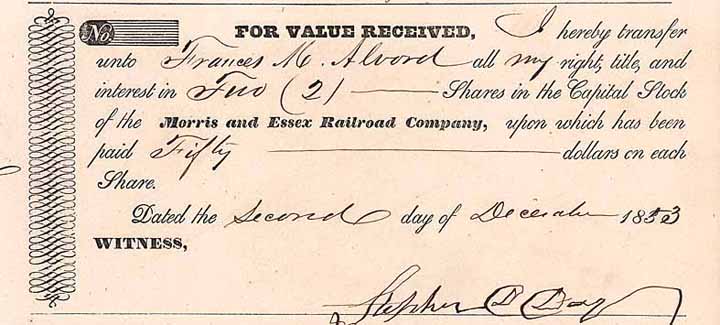 No.
FOR VALUE RECEIVED, I hereby transfer
unto Frances M. Alvord all my right, title, and
interest in Two (2) Shares in the Capital Stock
of the Morris and Essex Railroad Company, upon which has been
paid Fifty dollars on each
Share.
Dated the Second day of December 1853
WITNESS,
Stephen D Day